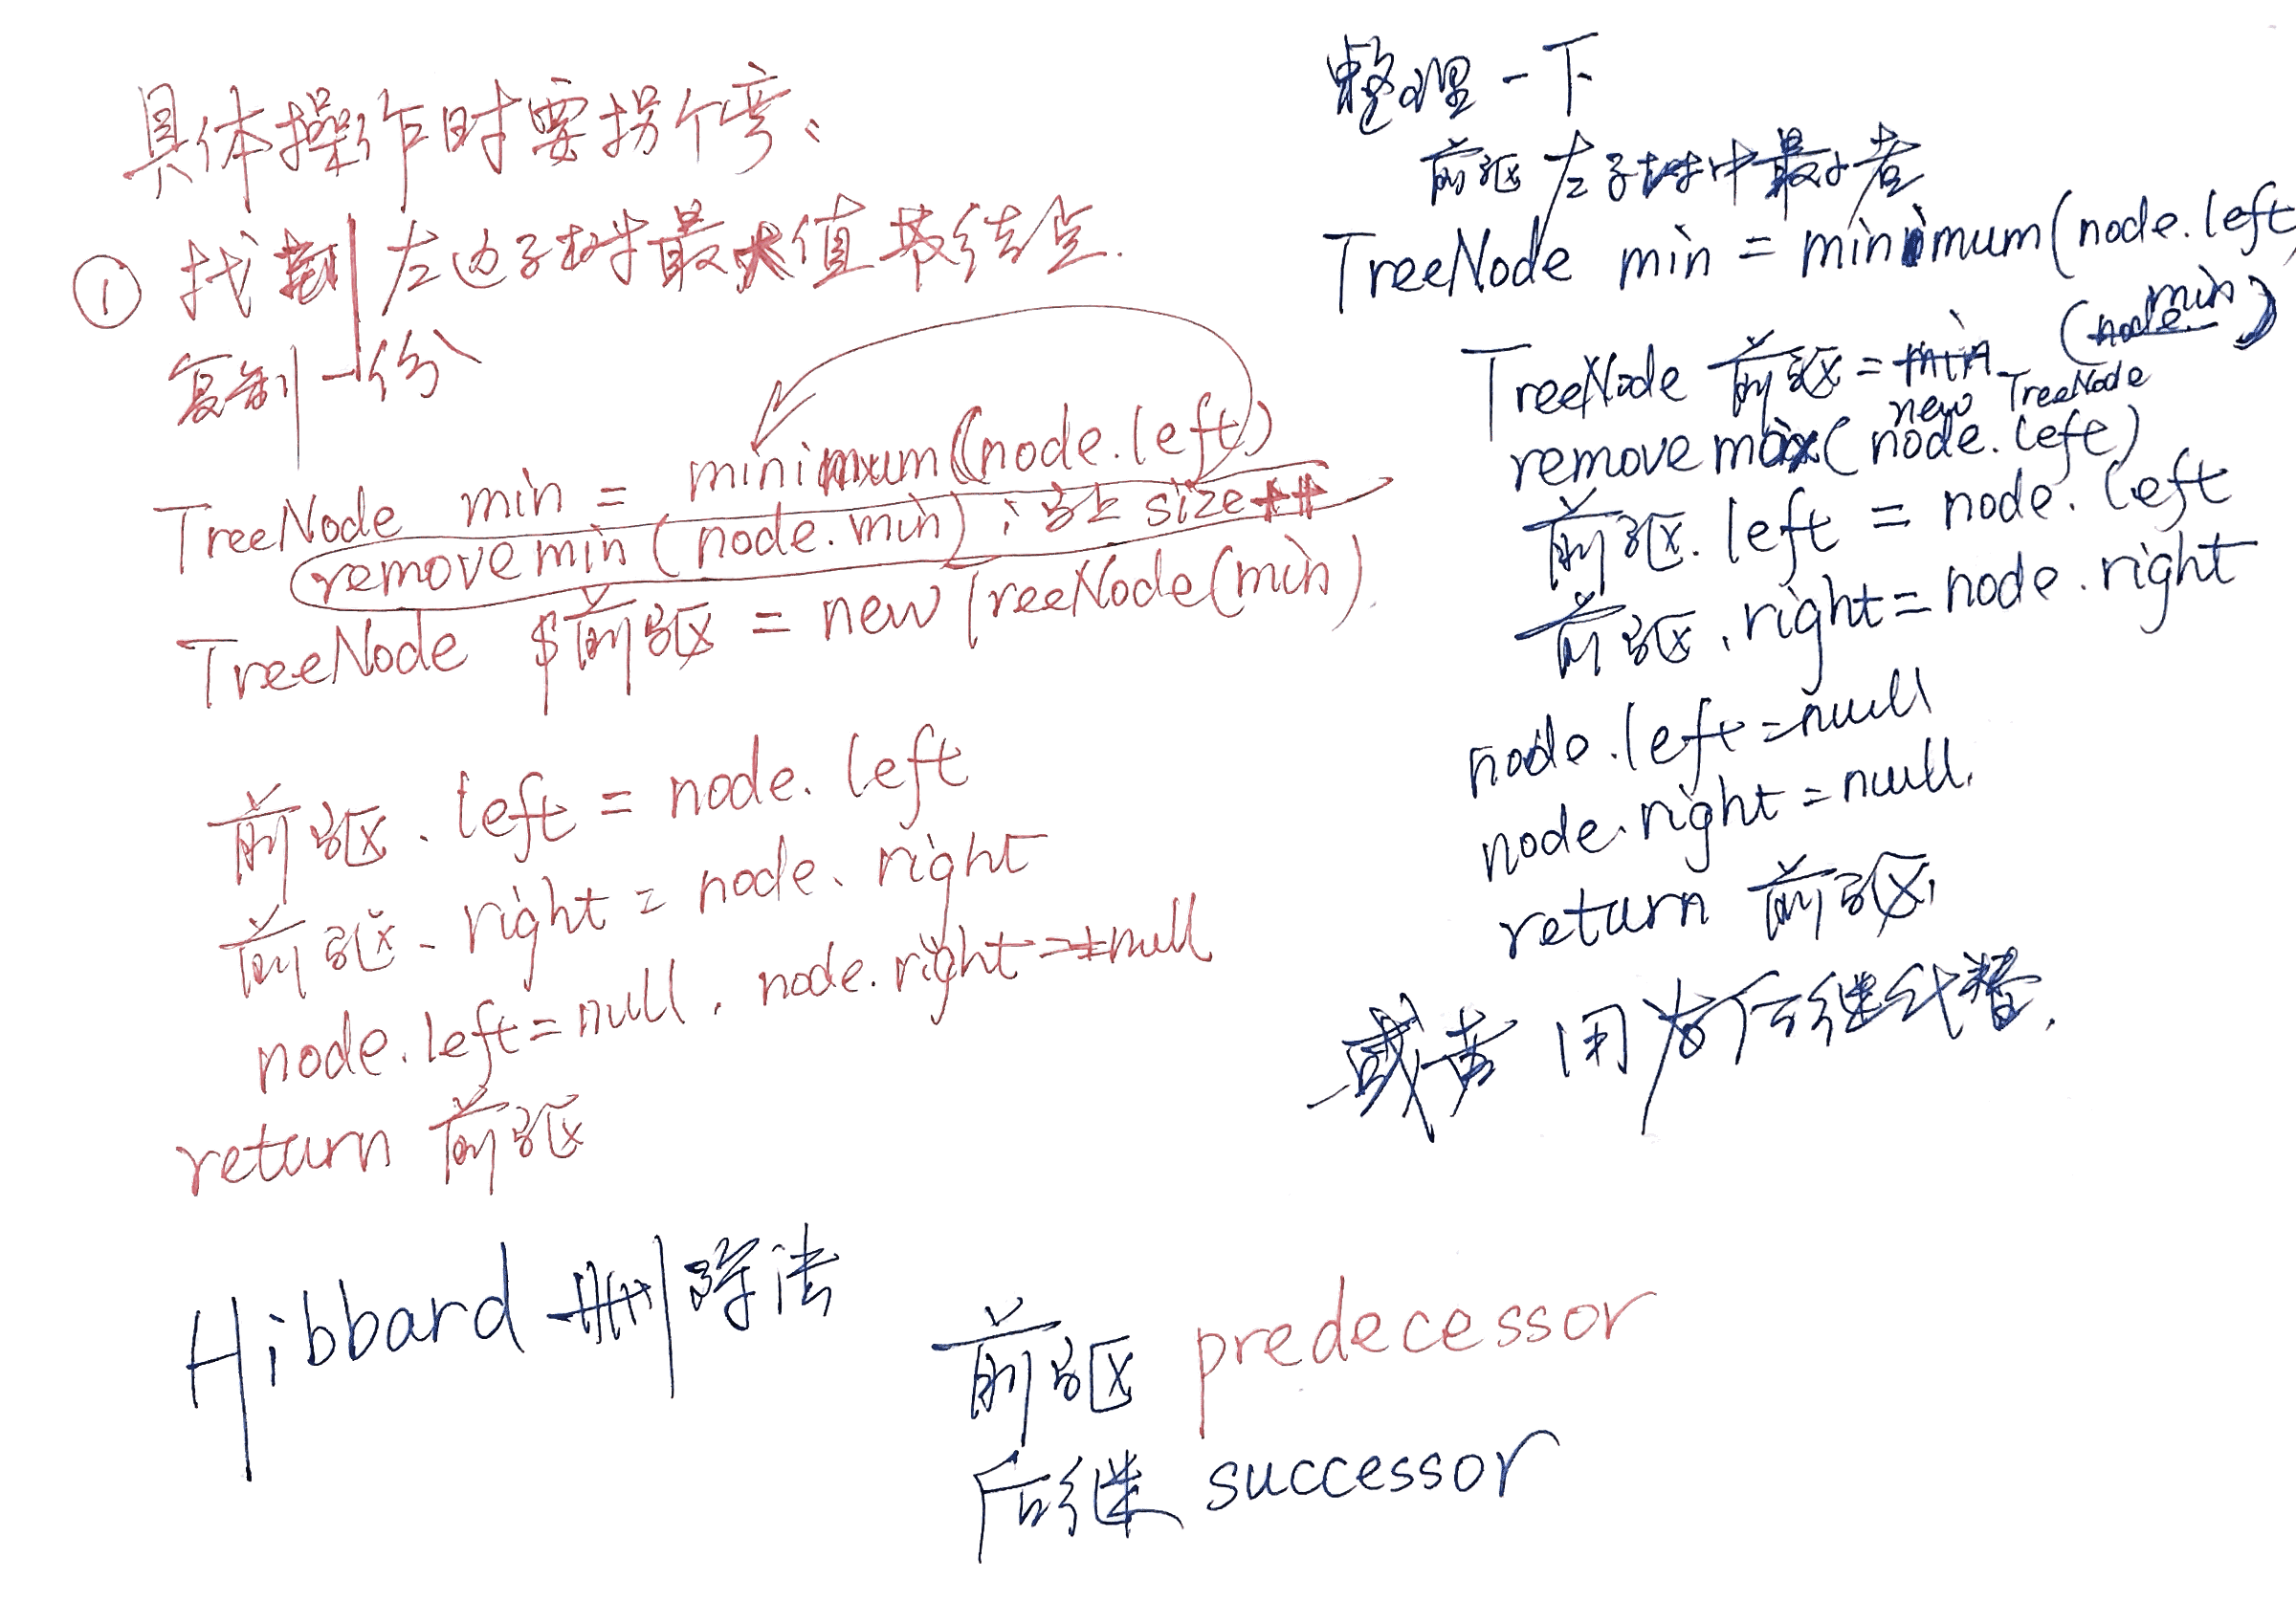 具体操作时要拐个弯、
① 找到左边子树最大值 结点.
复制一份
TreeNode min = minimum(node.left)
removemin(node.min); 马上 size++
TreeNode 前驱 = new TreeNode(min)
前驱.left = node.left
前驱.right = node.right
node.left = null. node.right = null
return 前驱
Hibbard 删除法
整理一下
前驱 左子树中最小者
TreeNode min = minimum(node.left
TreeNode 前驱 = new TreeNode (min)
remove max(node.left)
前驱.left = node.left
前驱.right = node.right
node.left = null
node.right = null.
return 前驱.
或者 用 后继代替.
前驱 predecessor
后继 successor